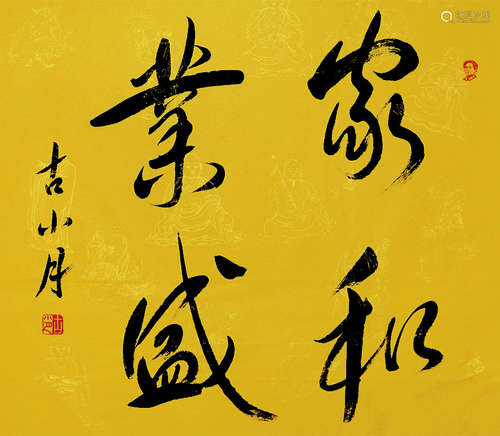 家和
業盛
古小月